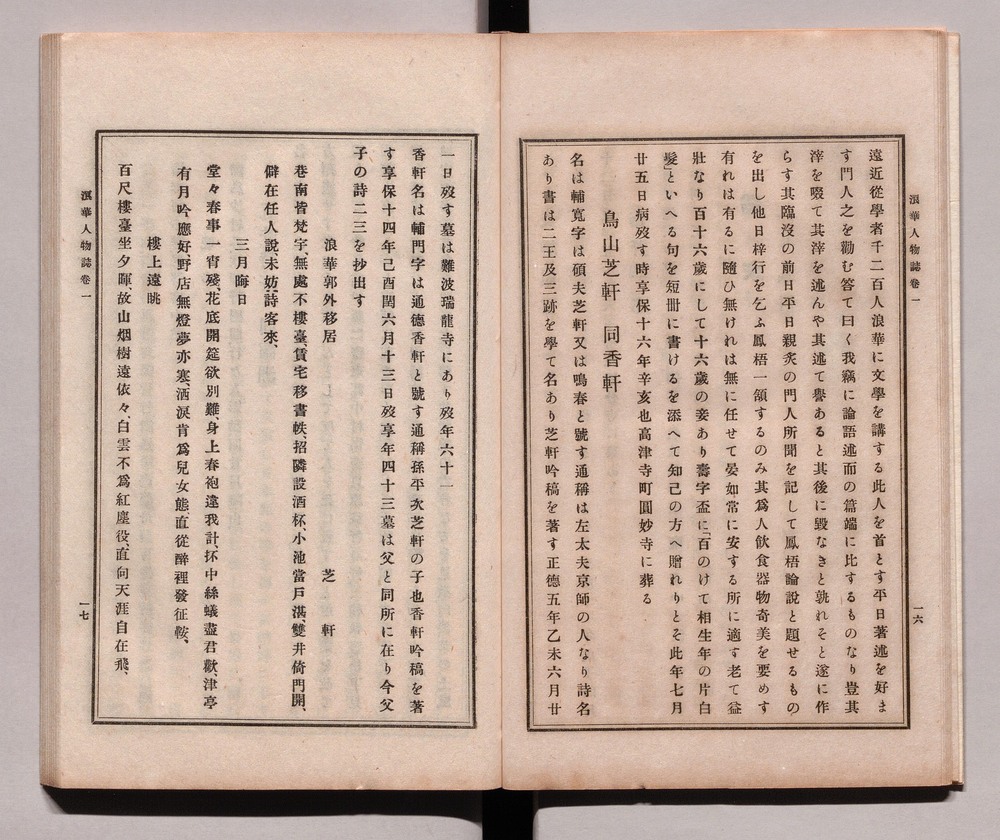 浪華人物誌卷一
一六
遠近從學者千二百人浪華に文學を講する此人を首とす平日著述を好ま
す門人之を勸む答て曰く我竊に論語述而の篇端に比するものなり豈其
滓を啜て其滓を述んや其述て譽あると其後に毀なきと孰れそと遂に作
らす其臨沒の前日平日親炙の門人所聞を記して鳳梧論說と題せるもの
を出し他日梓行を乞ふ鳳梧一頷するのみ其爲人飮食器物奇美を要めす
有れは有るに隨ひ無けれは無に任せて晏如常に安する所に適す老て益
壯なり百十六歲にして十六歲の妾あり壽字盃に「百のけて相生年の片白
髮」といへる句を短册に書けるを添へて知己の方へ贈れりとそ此年七月
廿五日病歿す時享保十六年辛亥也高津寺町圓妙寺に葬る
鳥山芝軒 同香軒
名は輔寬字は碩夫芝軒又は鳴春と號す通稱は左太夫京師の人なり詩名
あり書は二王及三跡を學て名あり芝軒吟稿を著す正德五年乙未六月廿
一日歿す墓は難波瑞龍寺にあり歿年六十一
香軒名は輔門字は通德香軒と號す通稱孫平次芝軒の子也香軒吟稿を著
す享保十四年己酉閏六月十三日歿享年四十三墓は父と同所に在り今父
子の詩二三を抄出す
浪華郭外移居 芝軒
巷南皆梵宇、無處不樓臺、賃宅移書帙、招隣設酒杯、小池當戶湛、雙井倚門開、
僻在任人說、未妨詩客來、
三月晦日
堂々春事一宵殘、花底開筵欲別難、身上春袍違我計、坏中綠蟻盡君歡、津亭
有月吟應好、野店無燈夢亦寒、洒淚肯爲兒女態、直從醉裡發征鞍、
樓上遠眺
百尺樓臺坐夕暉、故山烟樹遠依々、白雲不爲紅塵役、直向天涯自在飛、
浪華人物誌卷一
一七